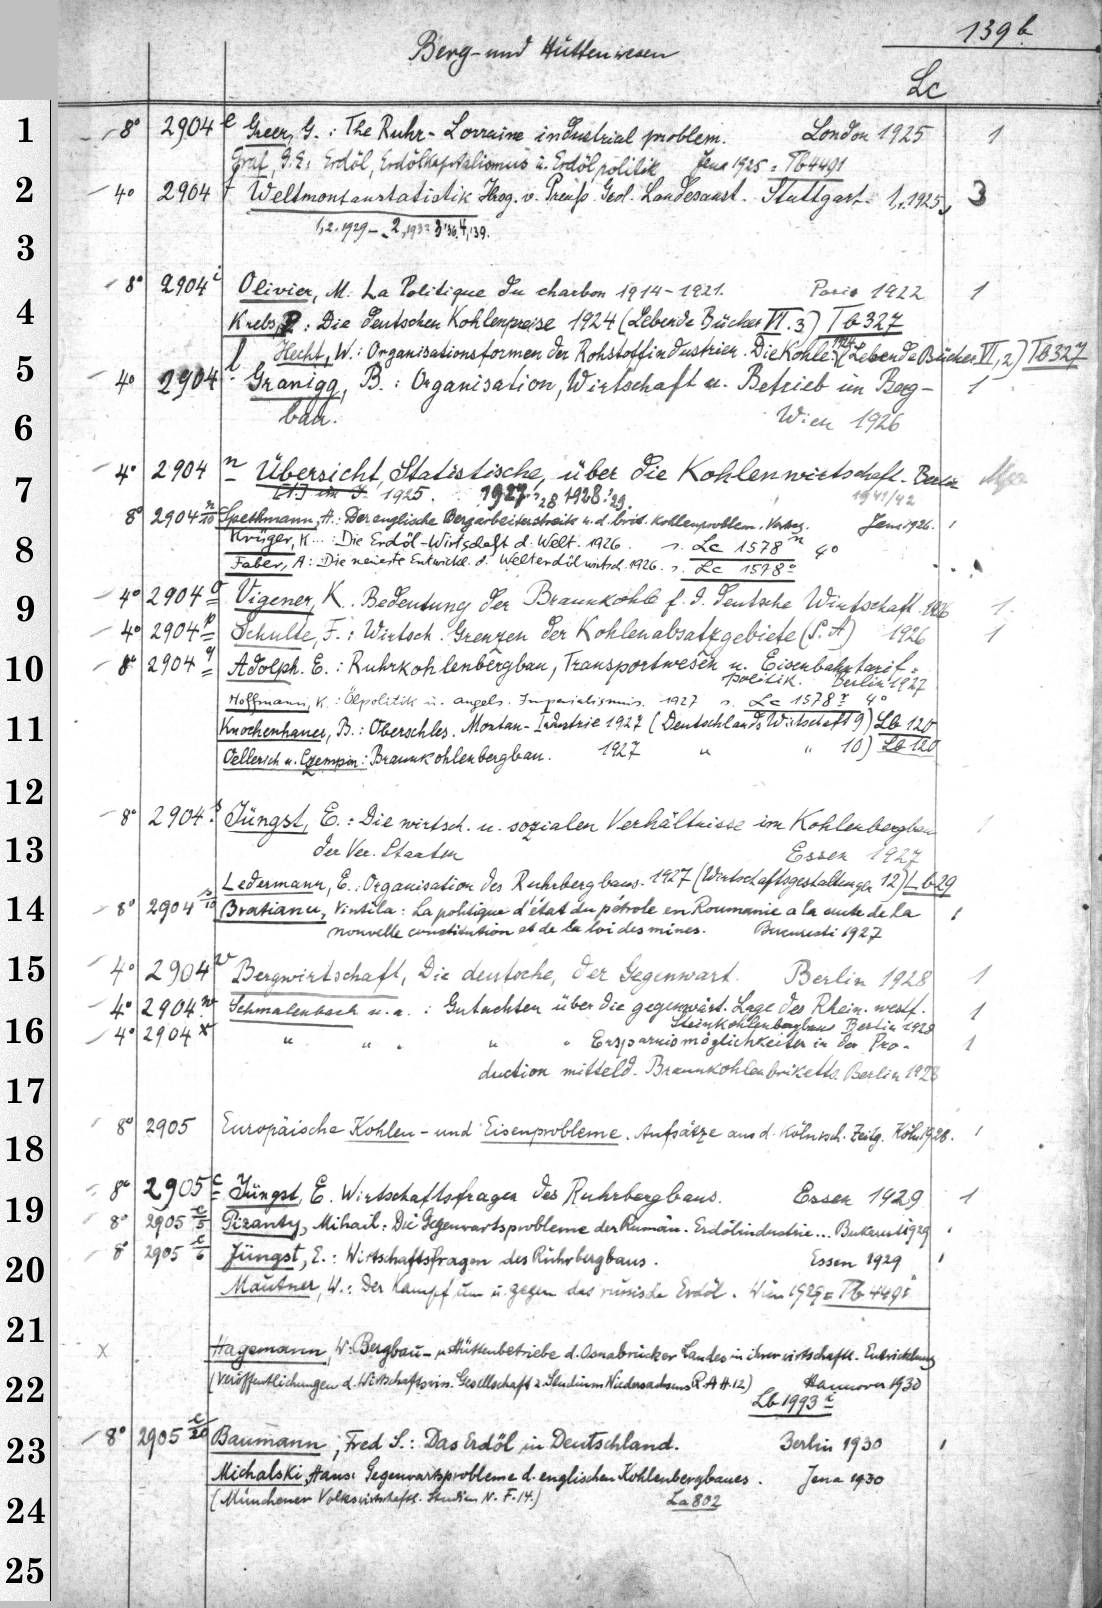 139 b
Berg- und Hüttenwesen
Lc
1 8° 2904 e Greer, G.: The Ruhr-Lorraine industrial problem. London 1925 1
Graf, G. E.: Erdöl, Erdölkapitalismus u. Erdölpolitik Jena 1925 = Tb 4491
2 4° 2904 f Weltmontanstatistik Hrsg. v. Preuß. Geol. Landesanst. Stuttgart. 1, 1925, 3
3 1, 2. 1929 - 2, 1932 3 '36. 4, '39.
8° 2904 i Olivier, M. La Politique du charbon 1914-1921. Paris 1922 1
4 Krebs, P.: Die deutschen Kohlenpreise 1924 (Lebende Bücher VI. 3) Tb 327
l Hecht, W.: Organisationsformen der Rohstoffindustrien. Die Kohle. 1924 (Lebende Bücher VI, 2) Tb 327
5 4° 2904 Granigg, B.: Organisation, Wirtschaft u. Betrieb im Berg-
6 bau. Wien 1926 1
7 4° 2904 n Übersicht, Statistische, über die Kohlenwirtschaft. Berlin
1925. 1927. 28 1928. 29. 1941/42
8° 2904 n/10 Spethmann, H.: Der englische Bergarbeiterstreik u. d. brit. Kohlenproblem. Jena 1926. 1
8 Krüger, K...: Die Erdöl-Wirtschaft d. Welt. 1926. s. Lc 1578 n 4°
Faber, A: Die neueste Entwickl. d. Welterdölwirtsch. 1926. s. Lc 1578 o
9 4° 2904 o Vigener, K. Bedeutung der Braunkohle f. d. deutsche Wirtschaft 1926 1.
4° 2904 p Schulte, F.: Wirtsch. Grenzen der Kohlenabsatzgebiete (S. A) 1926 1
10 8° 2904 q Adolph. E.: Ruhrkohlenbergbau, Transportwesen u. Eisenbahntarif-
politik. Berlin 1927
Hoffmann, K.: Ölpolitik u. angels. Imperialismus. 1927 s. Lc 1578 r 4°
11 Knochenhauer, B.: Oberschles. Montan-Industrie 1927 (Deutschlands Wirtschaft 9) Lb 120
Oellerich u. Czempin: Braunkohlenbergbau. 1927 " " 10) Lb 120
12
8° 2904 s Jüngst, E.: Die wirtsch. u. sozialen Verhältnisse im Kohlenbergbau 1
13 der Ver. Staaten Essen 1927
Ledermann, E.: Organisation des Ruhrbergbaus. 1927 (Wirtschaftsgestaltungen 12) Lb 29
14 8° 2904 s/10 Bratianu, Vintila: La politique d'état du pétrole en Roumanie a la suite de la 1
nouvelle constitution et de la loi des mines. Bucuresti 1927
15 4° 2904 v Bergwirtschaft, Die deutsche, der Gegenwart. Berlin 1928 1
4° 2904 w Schmalenbach u. a.: Gutachten über die gegenwärt. Lage des Rhein. westf. 1
16 Steinkohlenbergbaus Berlin 1928
4° 2904 x " " " " " Ersparnismöglichkeiten in der Pro- 1
17 duction mitteld. Braunkohlenbriketts. Berlin 1928
18 8° 2905 Europäische Kohlen- und Eisenprobleme. Aufsätze aus d. Kölnisch. Zeitg. Köln 1928. 1
19 8° 2905 c Jüngst, E. Wirtschaftsfragen des Ruhrbergbaus. Essen 1929 1
8° 2905 c/5 Pizanty, Mihail: Die Gegenwartsprobleme der Rumän. Erdölindustrie... Bukarest 1929 1
20 8° 2905 c/6 Jüngst, E.: Wirtschaftsfragen des Ruhrbergbaus. Essen 1929 1
Mautner, W.: Der Kampf um u. gegen das russische Erdöl. Wien 1929 = Tb 449 i
21
x Hagemann, W: Bergbau- u. Hüttenbetriebe d. Osnabrücker Landes in ihrer wirtschaftl. Entwicklung
22 (Veröffentlichungen d. Wirtschaftswiss. Gesellschaft z. Studium Niedersachsens R. A H. 12) Hannover 1930
Lb 1993 c
23 8° 2905 c/20 Baumann, Fred S.: Das Erdöl in Deutschland. Berlin 1930 1
Michalski, Hans: Gegenwartsprobleme d. englischen Kohlenbergbaues. Jena 1930
24 (Münchener Volkswirtschaftl. Studien N. F. 14.) La 802
25